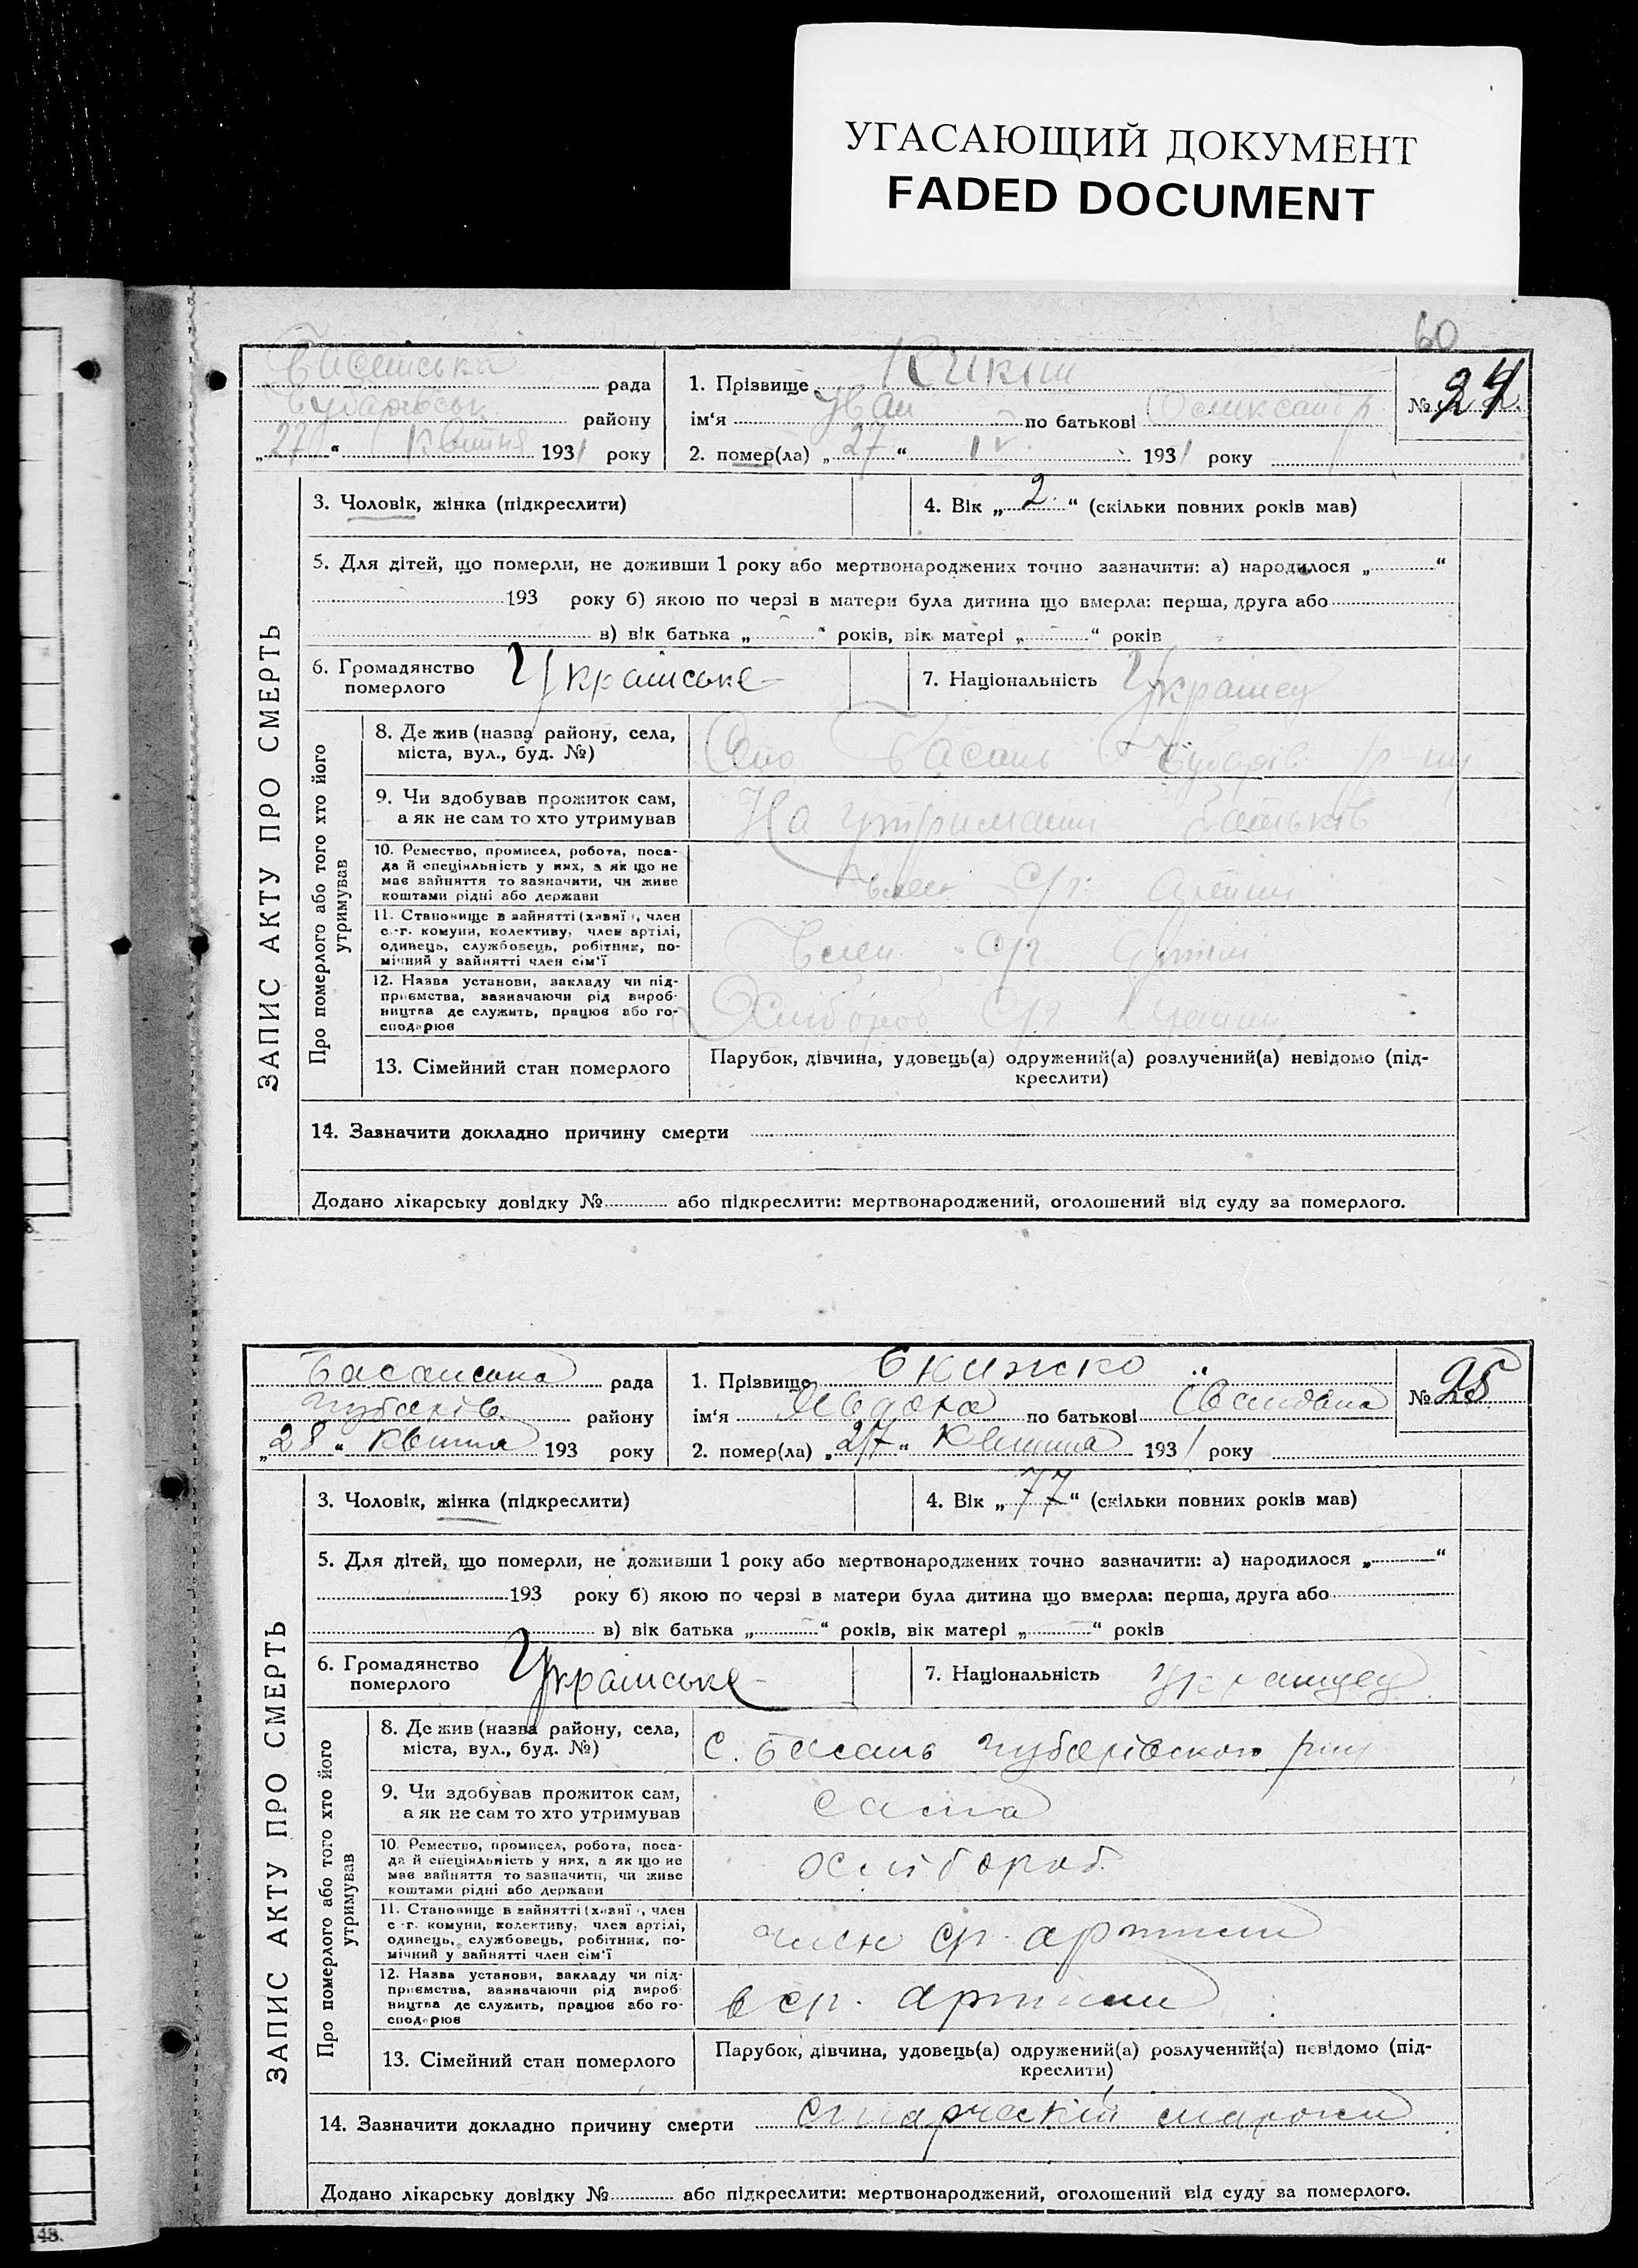 УГАСАЮЩИЙ ДОКУМЕНТ
FADED DOCUMENT
60
рада
району
„27“ Квітня 1931 року
1. Прізвище
ім‘я Іван по батькові
2. помер(ла) „27“ IV 1931 року
№ 24
ЗАПИС АКТУ ПРО СМЕРТЬ
3. Чоловік, жінка (підкреслити)
4. Вік „2“ (скільки повних років мав)
5. Для дітей, що померли, не доживши 1 року або мертвонароджених точно зазначити: а) народилося „ “
193 року б) якою по черзі в матери була дитина що вмерла: перша, друга або
в) вік батька „ “ років, вік матері „ “ років
6. Громадянство
померлого
Українське
7. Національність Українец
Про померлого або того хто його
утримував
8. Де жив (назва району, села,
міста, вул., буд. №)
Село Басань
9. Чи здобував прожиток сам,
а як не сам то хто утримував
На утриманні батьків
10. Ремество, промисел, робота, поса-
да й спеціяльність у них, а як що не
має зайняття то зазначити, чи живе
коштами рідні або держави
член с/г
11. Становище в зайнятті (хазяї , член
с.-г. комуни, колективу, член артілі,
одинець, службовець, робітник, по-
мічний у зайнятті член сім'ї
член с/г артілі
12. Назва установи, закладу чи під-
приємства, зазначаючи рід вироб-
ництва де служить, працює або го-
сподарює
Хлібороб с/г
13. Сімейний стан померлого
Парубок, дівчина, удовець(а) одружений(а) розлучений(а) невідомо (під-
креслити)
14. Зазначити докладно причину смерти
Додано лікарську довідку № або підкреслити: мертвонароджений, оголошений від суду за померлого.
Басанська рада
Чубарів. району
„28“ Квітня 193 року
1. Прізвище
ім‘я Явдоха по батькові
2. помер(ла) „27“ Квітня 1931 року
№ 25
ЗАПИС АКТУ ПРО СМЕРТЬ
3. Чоловік, жінка (підкреслити)
4. Вік „77“ (скільки повних років мав)
5. Для дітей, що померли, не доживши 1 року або мертвонароджених точно зазначити: а) народилося „ “
193 року б) якою по черзі в матери була дитина що вмерла: перша, друга або
в) вік батька „ “ років, вік матері „ “ років
6. Громадянство
померлого
Українське
7. Національність
Про померлого або того хто його
утримував
8. Де жив (назва району, села,
міста, вул., буд. №)
с. Басань Чубарівського р-ну
9. Чи здобував прожиток сам,
а як не сам то хто утримував
сама
10. Ремество, промисел, робота, поса-
да й спеціяльність у них, а як що не
має зайняття то зазначити, чи живе
коштами рідні або держави
хлібороб.
11. Становище в зайнятті (хазяї , член
с.-г. комуни, колективу, член артілі,
одинець, службовець, робітник, по-
мічний у зайнятті член сім'ї
член с/г. артілі
12. Назва установи, закладу чи під-
приємства, зазначаючи рід вироб-
ництва де служить, працює або го-
сподарює
в с/г. артілі
13. Сімейний стан померлого
Парубок, дівчина, удовець(а) одружений(а) розлучений(а) невідомо (під-
креслити)
14. Зазначити докладно причину смерти
Додано лікарську довідку № або підкреслити: мертвонароджений, оголошений від суду за померлого.
48.